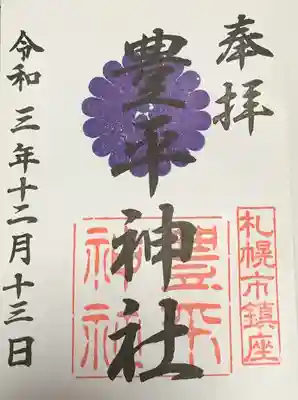 奉拝
札幌市鎮座
豊平神社
豊平神社
令和三年十二月十三日